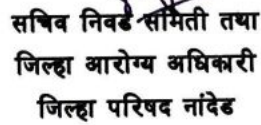 सचिव निवड समिती तथा
जिल्हा आरोग्य अधिकारी
जिल्हा परिषद नांदेड